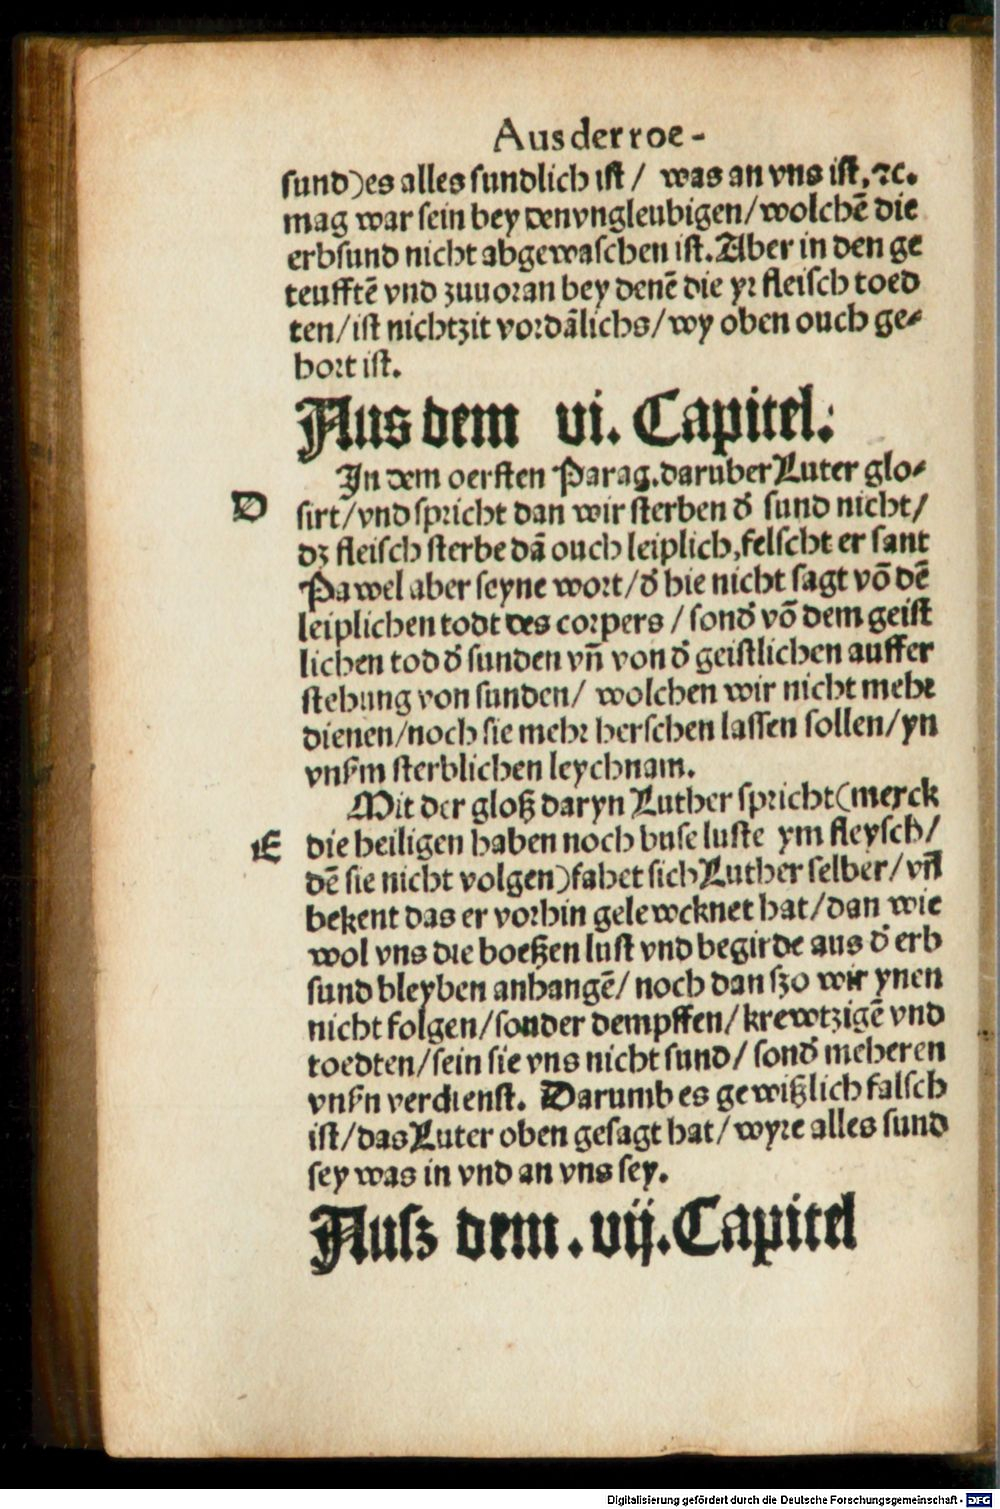 Aus der roe-
sund) es alles sundlich ist / was an vns ist, ⁊c.
mag war sein bey den vngleubigen/wolchē die
erbsund nicht abgewaschen ist. Aber in den ge
teufftē vnd zuuoran bey denē die yr fleisch toed
ten/ist nichtzit vordālichs/wy oben ouch ge⸗
hort ist.
Aus dem vi. Capitel.
In dem oersten Parag. daruber Luter glo⸗
D
sirt/vnd spricht dan wir sterben d̄ sund nicht/
dz fleisch sterbe dā ouch leiplich, felscht er sant
Pawel aber seyne wort/d̄ hie nicht sagt vō dē
leiplichen todt des corpers / sond̄ vō dem geist
lichen tod d̄ sunden vn̄ von d̄ geistlichen auffer
stehung von sunden/ wolchen wir nicht mehr
dienen/noch sie mehr herschen lassen sollen/yn
vnẜm sterblichen leychnam.
Mit der gloß daryn Luther spricht (merck
E
die heiligen haben noch buse luste ym fleysch/
dē sie nicht volgen) fahet sich Luther selber/vn̄
bekent das er vorhin gelewcknet hat/dan wie
wol vns die boeßen lust vnd begirde aus d̄ erb
sund bleyben anhangē/ noch dan szo wir ynen
nicht folgen/sonder dempffen/krewtzigē vnd
toedten/sein sie vns nicht sund/ sond̄ meheren
vnẜn verdienst. Darumb es gewißlich falsch
ist/das Luter oben gesagt hat/wyre alles sund
sey was in vnd an vns sey.
Ausz dem .vij. Capitel
Digitalisierung gefördert durch die Deutsche Forschungsgemeinschaft - DFG